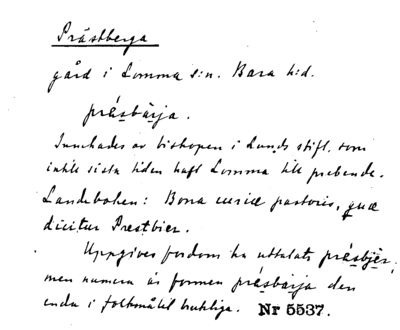 Prästberga
gård i Lomma s:n. Bara h:d.
présbärja.
Innehades av biskopen i Lunds stift, som
intill sista tiden haft Lomma till prebende.
Landeboken: Bona curiæ pastoris, quæ
dicitur Prestbier.
Uppgives fordom ha uttalats présbjär,
men numera är formen présbärja den
enda i folkmålet brukliga. Nr 5537.